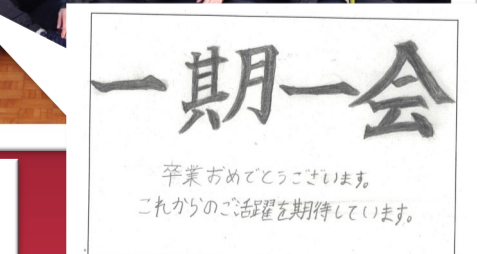 一期一会
卒業おめでとうございます。
これからのご活躍を期待しています。